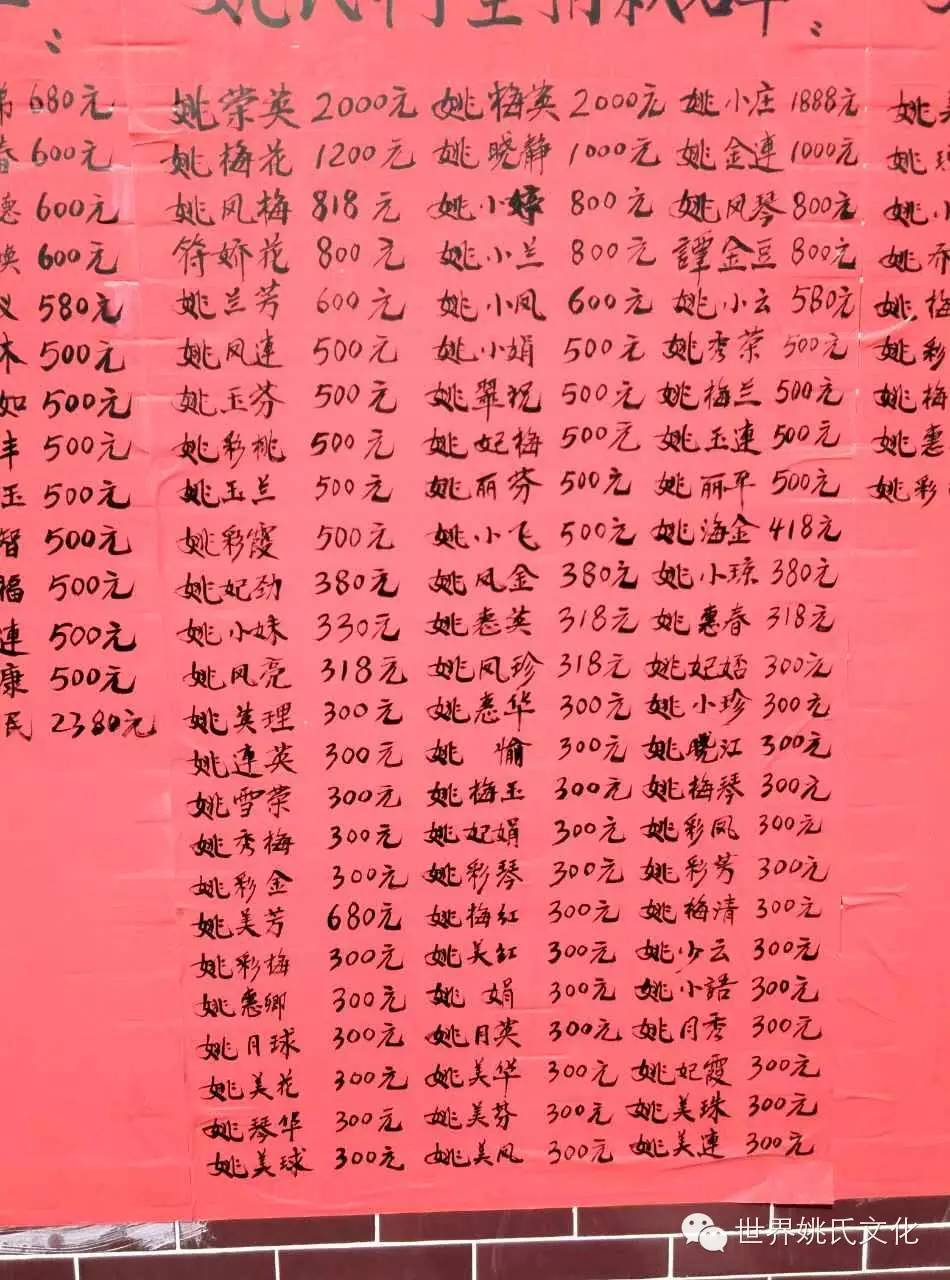 姚氏祠堂捐款
弟 680元 姚荣英 2000元 姚梅英 2000元 姚小庄 1888元 姚
春 600元 姚梅花 1200元 姚晓静 1000元 姚金連 1000元 姚
德 600元 姚凤梅 818元 姚小婷 800元 姚凤琴 800元 姚小
焕 600元 符娇花 800元 姚小兰 800元 譚金豆 800元 姚乔
义 580元 姚兰芳 600元 姚小凤 600元 姚小云 580元 姚梅
木 500元 姚凤連 500元 姚小娟 500元 姚秀荣 500元 姚彩
如 500元 姚玉芬 500元 姚翠祝 500元 姚梅兰 500元 姚梅
丰 500元 姚彩桃 500元 姚妃梅 500元 姚玉連 500元 姚惠
玉 500元 姚玉兰 500元 姚丽芬 500元 姚丽平 500元 姚彩
智 500元 姚彩霞 500元 姚小飞 500元 姚海金 418元
福 500元 姚妃劲 380元 姚凤金 380元 姚小琼 380元
連 500元 姚小妹 330元 姚惹英 318元 姚惠春 318元
康 500元 姚凤亮 318元 姚凤珍 318元 姚妃婼 300元
民 2380元 姚英理 300元 姚惹华 300元 姚小珍 300元
姚連英 300元 姚 愉 300元 姚晓江 300元
姚雪荣 300元 姚梅玉 300元 姚梅琴 300元
姚秀梅 300元 姚妃娟 300元 姚彩凤 300元
姚彩金 300元 姚彩琴 300元 姚彩芳 300元
姚美芳 680元 姚梅红 300元 姚梅清 300元
姚彩梅 300元 姚美红 300元 姚少云 300元
姚惠卿 300元 姚 娟 300元 姚小語 300元
姚月球 300元 姚月英 300元 姚月秀 300元
姚美花 300元 姚美华 300元 姚妃霞 300元
姚琴华 300元 姚美芬 300元 姚美珠 300元
姚美球 300元 姚美凤 300元 姚美連 300元
世界姚氏文化